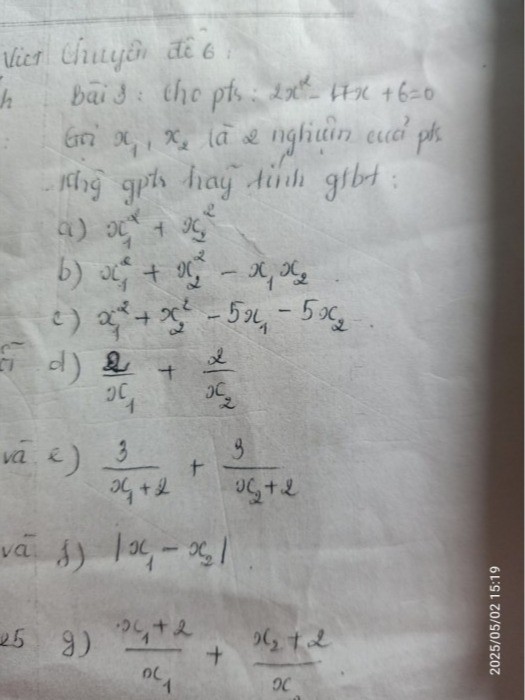 Viet Chuyên đề 6:
h Bài 9: Cho pts: 2x² - 17x + 6=0
: Gọi x₁, x₂ là 2 nghiệm của pt
khg gpts hãy tính gtbt:
a) x₁² + x₂²
b) x₁² + x₂² - x₁x₂
c) x₁² + x₂² - 5x₁ - 5x₂
d) 2/x₁ + 2/x₂
và e) 3/(x₁+2) + 3/(x₂+2)
và f) |x₁ - x₂|
25 g) (x₁+2)/x₁ + (x₂+2)/x
2025/05/02 15:19